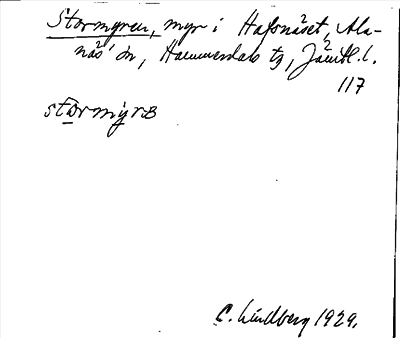 Stormyren, myr i Hafsnäset, Ala-
näs' sn, Hammerdals tg, Jämtl. l.
117
C. Lindberg 1929.